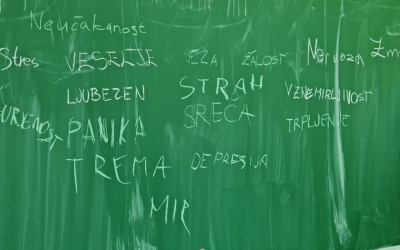 Neučakanost
Stres VESELJE JEZA ŽALOST
LJUBEZEN STRAH VZNEMIRLJIVOST
PANIKA SREČA TRPLJENJE
TREMA DEPRESIJA
MIR